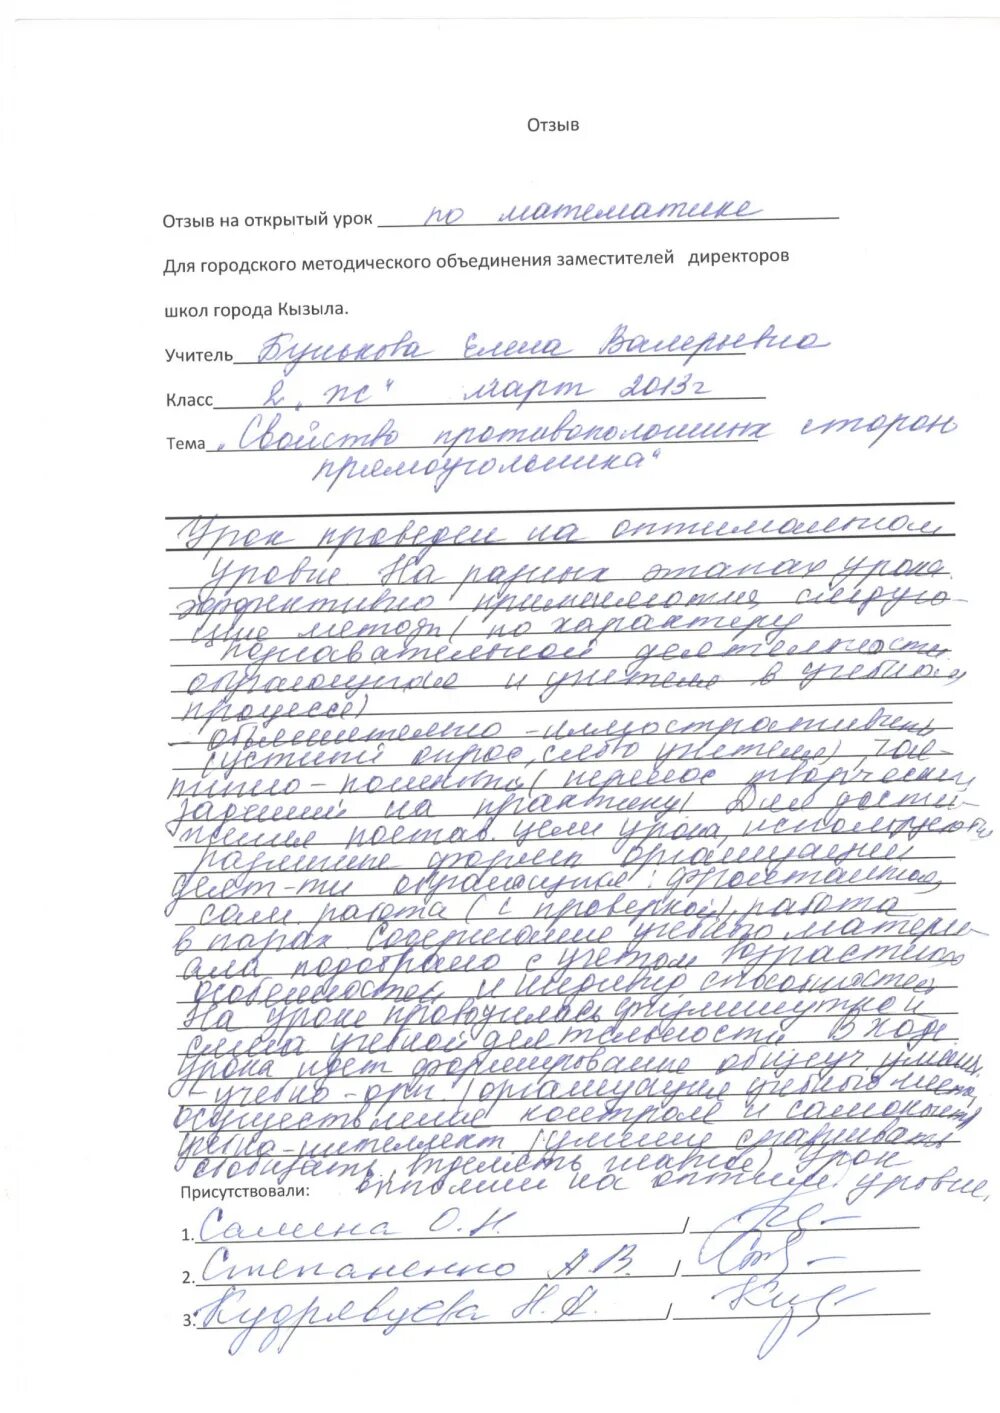 Отзыв
Отзыв на открытый урок по математике
Для городского методического объединения заместителей директоров
школ города Кызыла.
Учитель Бунькова Елена Валерьевна
Класс 2 „Ж“ март 2013г
Тема „Свойство противоположных сторон
прямоугольника“
Урок проведен на оптимальном
уровне. На разных этапах урока
эффективно применяются следую-
щие методы (по характеру
познавательной деятельности
обучающихся и учителя в учебном
процессе)
- объяснительно-иллюстративный
(устный опрос, слово учителя), час-
тично-поисковый (перенос творческих
заданий на практику). Для дости-
жения постав. цели урока, используются
различные формы организации
деят-ти обучающихся: фронтальная,
сам. работа (с проверкой), работа
в парах. Содержание учебного матери-
ала подобрано с учетом возрастных
особенностей и индивид. способностей
На уроке проводилась физминутка и
смена учебной деятельности. В ходе
урока идет формирование общеуч. умений:
- учебно-орг. (организация учебного места,
осуществление контроля и самоконтр.)
учебно-интеллект. (умение сравнивать
обобщать, выделять главное) Урок
выполнен на оптим. уровне.
Присутствовали:
1. Салина О.Н. /
2. Степаненко А.В. /
3. Кудрявцева Н.А. /